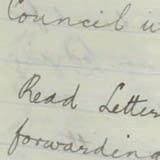 Council
Read Letter
forwarding